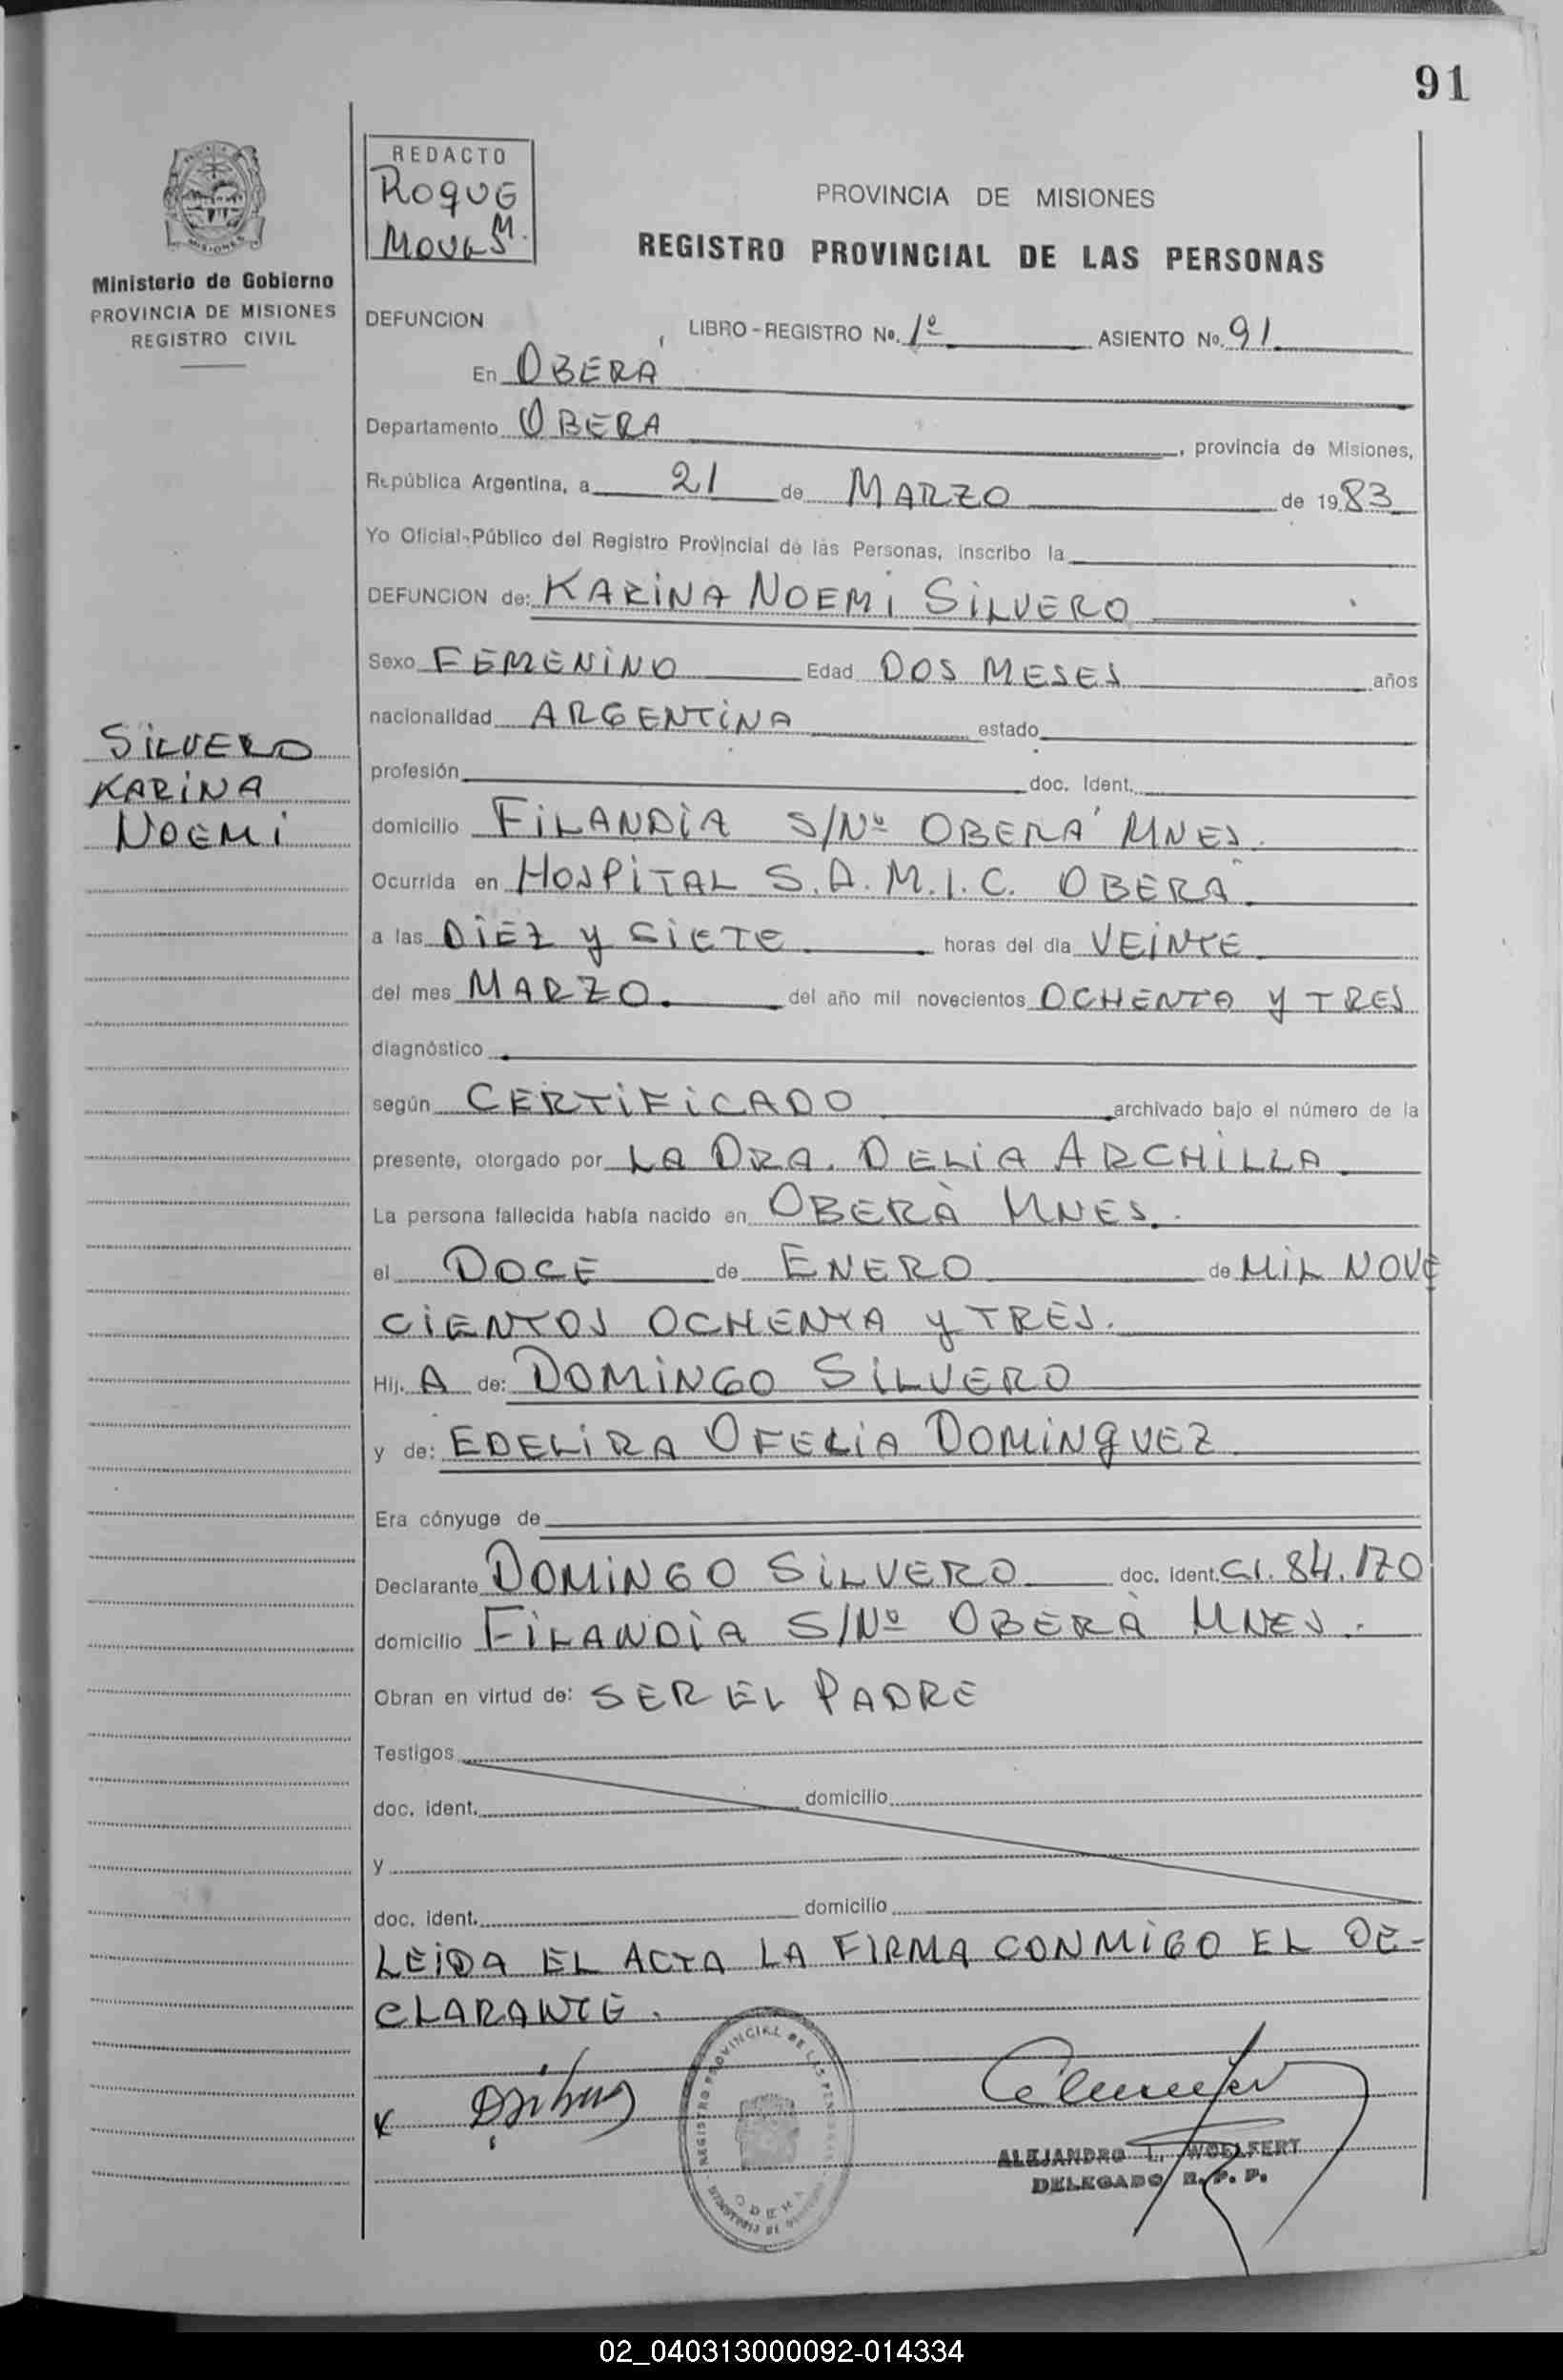 91
REDACTO
ROQUE
M.
PROVINCIA DE MISIONES
REGISTRO PROVINCIAL DE LAS PERSONAS
MISIONES
Ministerio de Gobierno
PROVINCIA DE MISIONES
REGISTRO CIVIL
DEFUNCION LIBRO-REGISTRO No. 1º ASIENTO No. 91
En OBERÁ
Departamento OBERA, provincia de Misiones,
República Argentina, a 21 de MARZO de 1983
Yo Oficial-Público del Registro Provincial de las Personas, inscribo la
DEFUNCION de: KARINA NOEMI SILVERO
Sexo FEMENINO Edad DOS MESES años
nacionalidad ARGENTINA estado
SILVERO
KARINA
NOEMI
profesión doc. Ident.
domicilio FILANDIA S/Nº OBERA' MNES.
Ocurrida en HOSPITAL S.A.M.I.C. OBERA
a las DIEZ Y SIETE horas del dia VEINTE
del mes MARZO. del año mil novecientos OCHENTA Y TRES
diagnóstico
según CERTIFICADO archivado bajo el número de la
presente, otorgado por LA DRA. DELIA ARCHILLA
La persona fallecida había nacido en OBERÀ MNES.
el DOCE de ENERO de MIL NOVE
CIENTOS OCHENTA Y TRES.
Hij. A de: DOMINGO SILVERO
y de: EDELIRA OFELIA DOMINGUEZ
Era cónyuge de
Declarante DOMINGO SILVERO doc. ident. CI. 84.170
domicilio FILANDIA S/Nº OBERÀ MNES.
Obran en virtud de: SER EL PADRE
Testigos
doc. ident. domicilio
y
doc. ident. domicilio
LEIDA EL ACTA LA FIRMA CONMIGO EL DE-
CLARANTE.
REGISTRO PROVINCIAL DE LAS PERSONAS
OBERA
ALEJANDRO L. WOELFERT
DELEGADO R. P. P.
02_040313000092-014334